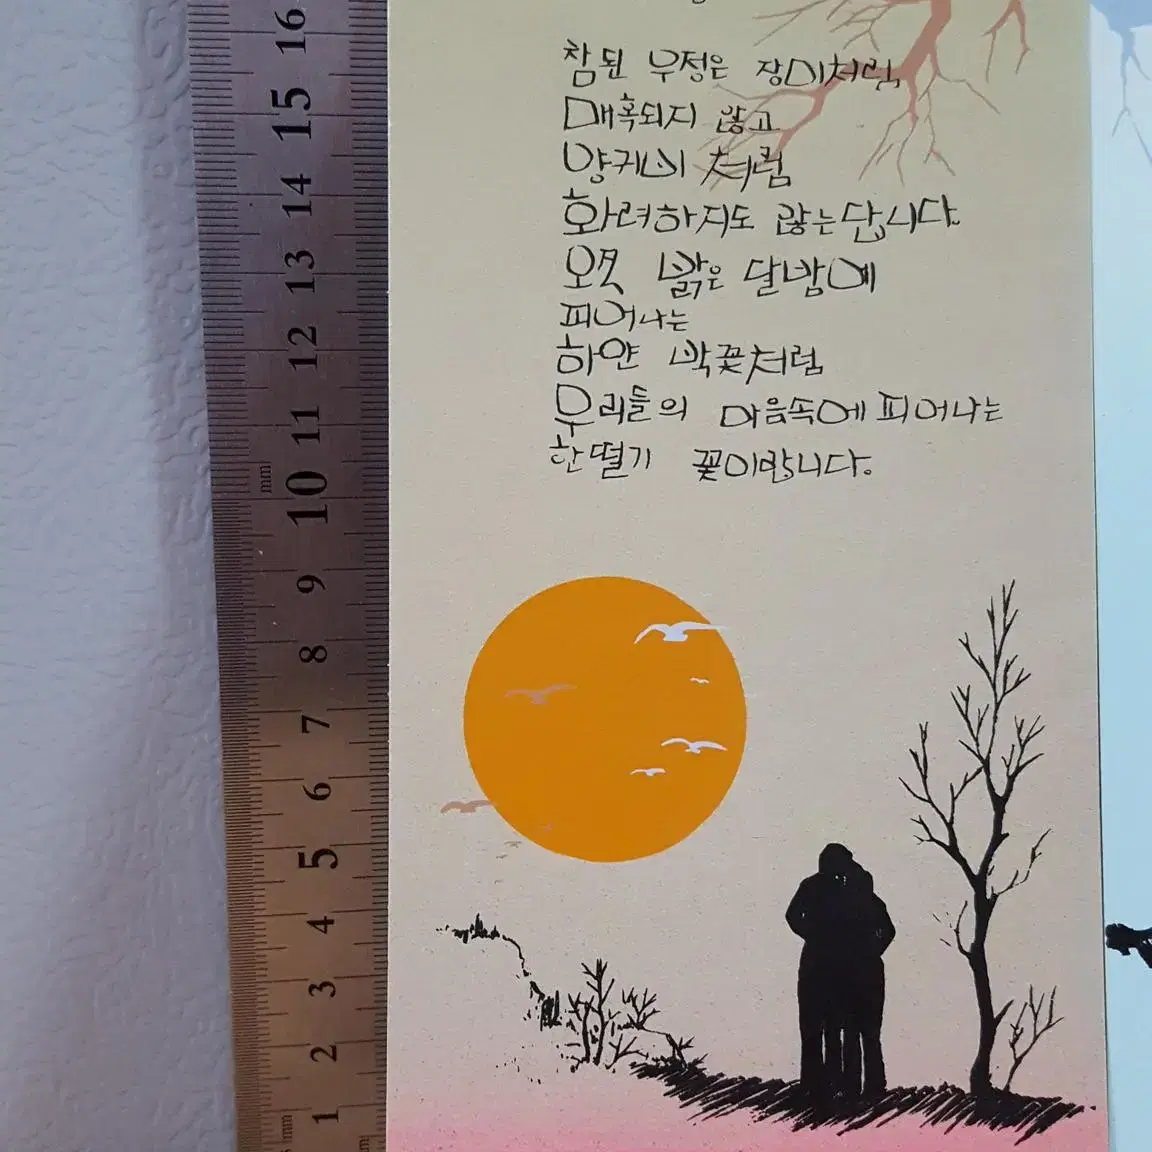 16
15
14
13
12
11
mm
10
9
8
7
6
5
4
3
2
1
mm
참된 우정은 장미처럼
매혹되지 않고
양귀비 처럼
화려하지도 않는답니다.
오직 밝은 달밤에
피어나는
하얀 박꽃처럼
우리들의 마음속에 피어나는
한떨기 꽃이랍니다.